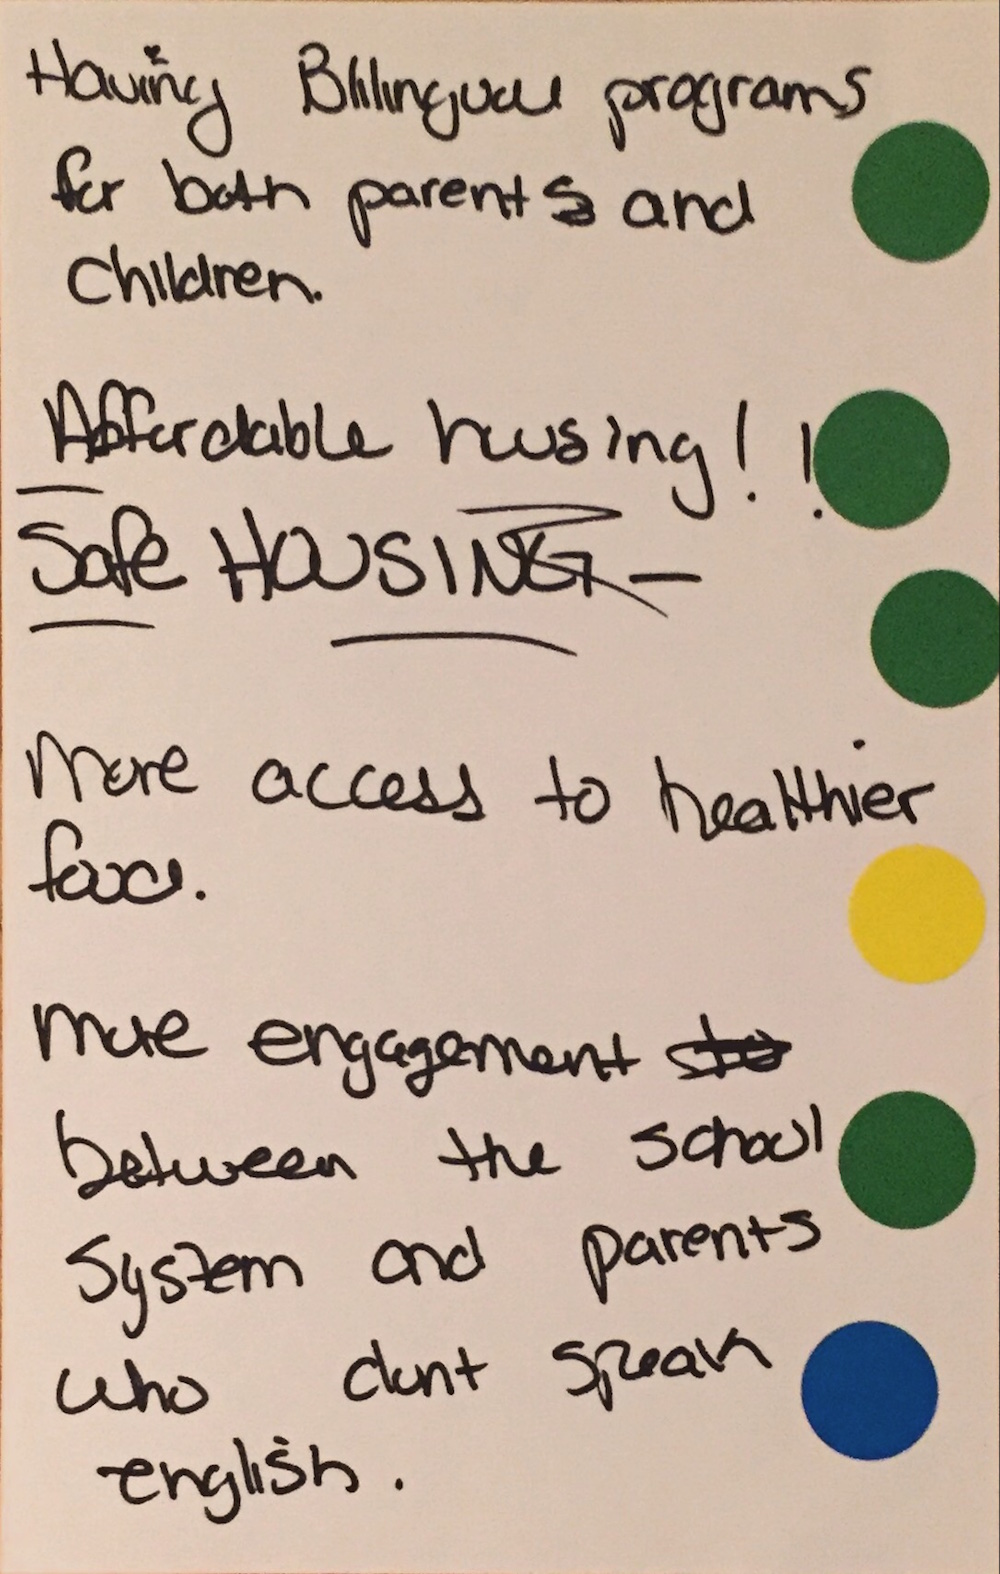 Having Bliingual programs
for both parents and
children.
Affordable housing!!
Safe HOUSING —
More access to healthier
food.
more engagement
between the school
system and parents
who dont speak
english.